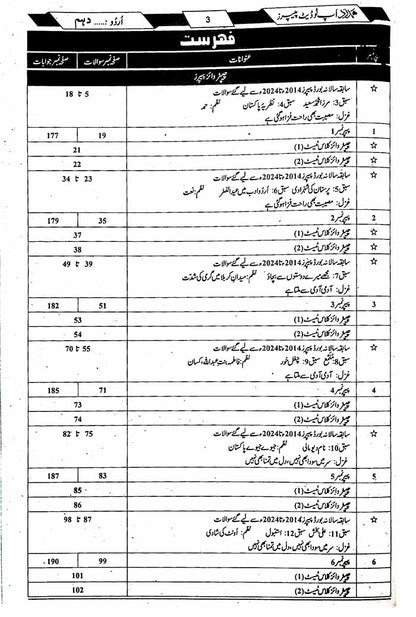 ہمدرد اَپ ٹو ڈیٹ پیپرز 3 اُردو: ..... دہم
فہرست
پیپر نمبر عنوانات صفحہ نمبر سوالات صفحہ نمبر جوابات
چیپٹر وائز پیپرز
☆ سابقہ سالانہ بورڈ پیپرز 2014ء تا 2024ء سے لیے گئے سوالات 5 تا 18
سبق 3: مرزا محمد سعید سبق 4: نظریۂ پاکستان نظم: حمد
غزل: مصیبت بھی راحت فزا ہو گئی ہے
1 پیپر نمبر 1 19 177
چیپٹر وائز کلاس ٹیسٹ (1) 21
چیپٹر وائز کلاس ٹیسٹ (2) 22
☆ سابقہ سالانہ بورڈ پیپرز 2014ء تا 2024ء سے لیے گئے سوالات 23 تا 34
سبق 5: پرستان کی شہزادی سبق 6: اُردو ادب میں عیدالفطر نظم: نعت
غزل: مصیبت بھی راحت فزا ہو گئی ہے
2 پیپر نمبر 2 35 179
چیپٹر وائز کلاس ٹیسٹ (1) 37
چیپٹر وائز کلاس ٹیسٹ (2) 38
☆ سابقہ سالانہ بورڈ پیپرز 2014ء تا 2024ء سے لیے گئے سوالات 39 تا 49
سبق 7: مجھے میرے دوستوں سے بچاؤ نظم: میدانِ کربلا میں گرمی کی شدت
غزل: آدمی آدمی سے ملتا ہے
3 پیپر نمبر 3 51 182
چیپٹر وائز کلاس ٹیسٹ (1) 53
چیپٹر وائز کلاس ٹیسٹ (2) 54
☆ سابقہ سالانہ بورڈ پیپرز 2014ء تا 2024ء سے لیے گئے سوالات 55 تا 70
سبق 8: ملمع سبق 9: چغل خور نظم: فاطمہ بنت عبداللہ، کسان
غزل: آدمی آدمی سے ملتا ہے
4 پیپر نمبر 4 71 185
چیپٹر وائز کلاس ٹیسٹ (1) 73
چیپٹر وائز کلاس ٹیسٹ (2) 74
☆ سابقہ سالانہ بورڈ پیپرز 2014ء تا 2024ء سے لیے گئے سوالات 75 تا 82
سبق 10: نام دیو مالی نظم: جیوے جیوے پاکستان
غزل: سر میں سودا بھی نہیں، دل میں تمنا بھی نہیں
5 پیپر نمبر 5 83 187
چیپٹر وائز کلاس ٹیسٹ (1) 85
چیپٹر وائز کلاس ٹیسٹ (2) 86
☆ سابقہ سالانہ بورڈ پیپرز 2014ء تا 2024ء سے لیے گئے سوالات 87 تا 98
سبق 11: علی بخش سبق 12: استنبول نظم: اُونٹ کی شادی
غزل: سر میں سودا بھی نہیں، دل میں تمنا بھی نہیں
6 پیپر نمبر 6 99 190
چیپٹر وائز کلاس ٹیسٹ (1) 101
چیپٹر وائز کلاس ٹیسٹ (2) 102